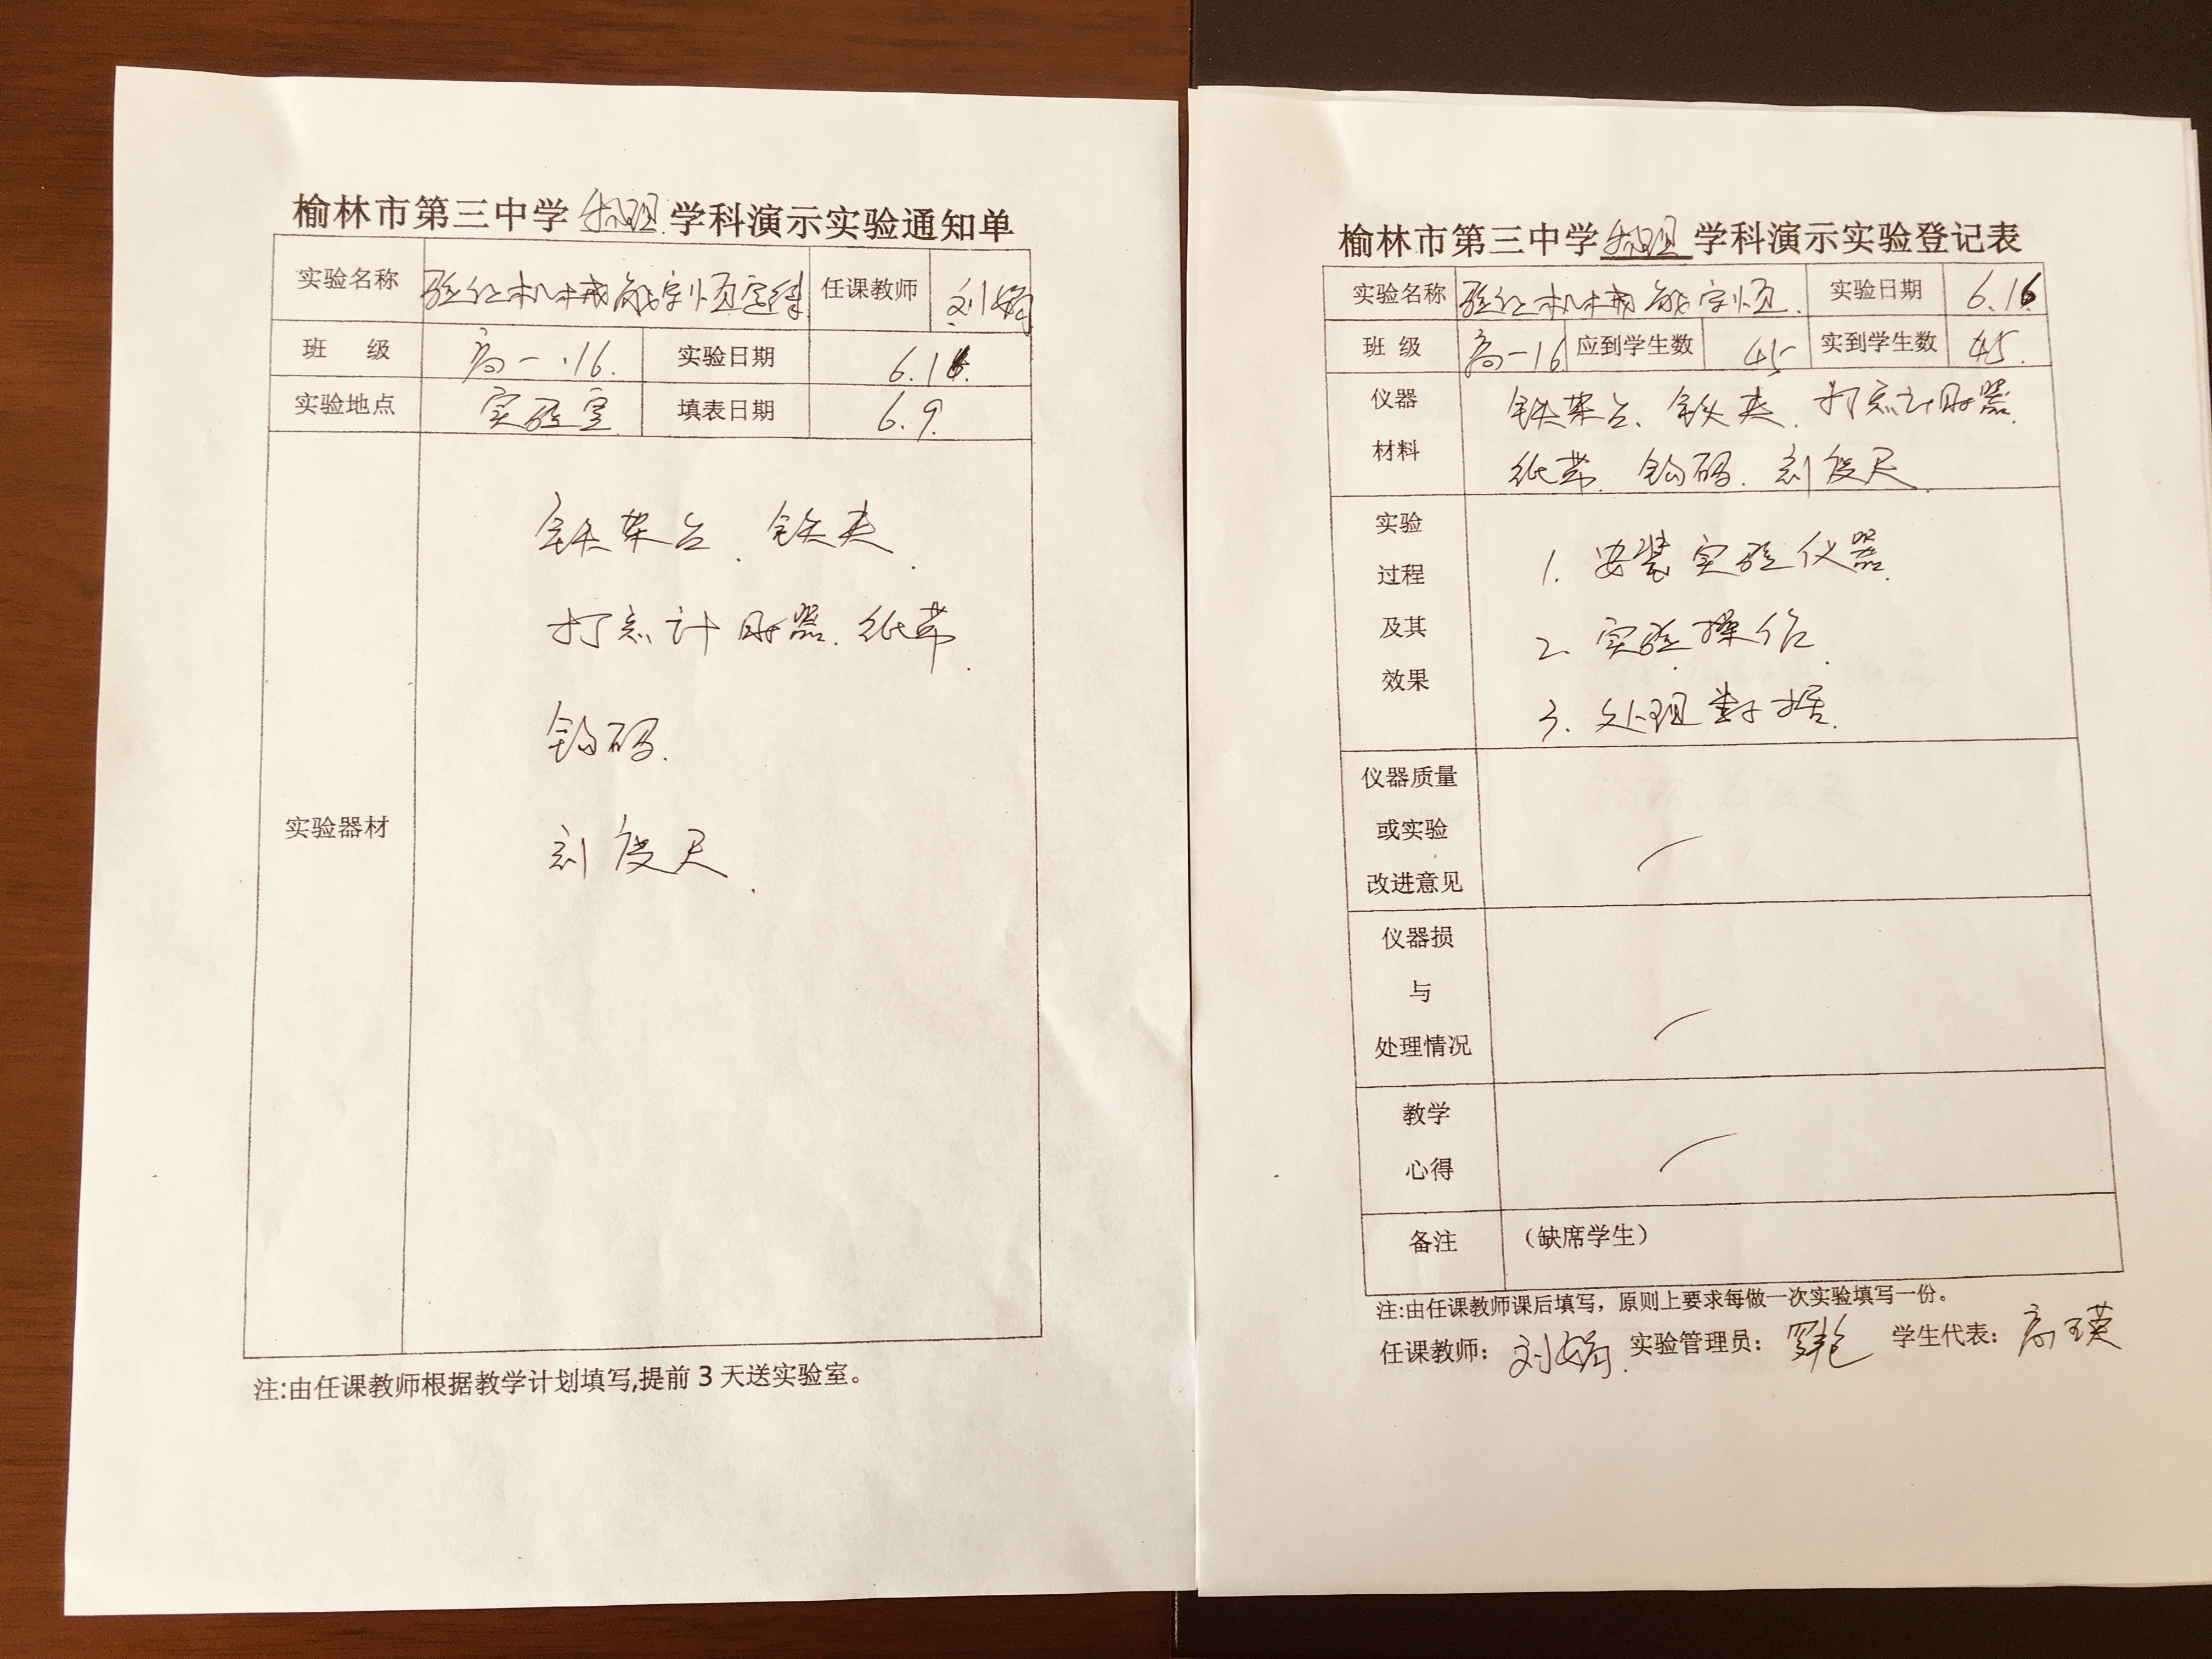 榆林市第三中学物理学科演示实验通知单
实验名称 验证机械能守恒定律 任课教师 刘娟
班 级 高一.16. 实验日期 6.16.
实验地点 实验室 填表日期 6.9.
实验器材
铁架台、铁夹.
打点计时器.纸带.
钩码.
刻度尺.
注:由任课教师根据教学计划填写,提前3天送实验室。
榆林市第三中学物理学科演示实验登记表
实验名称 验证机械能守恒. 实验日期 6.16
班 级 高一16 应到学生数 45 实到学生数 45.
仪器
材料
铁架台、铁夹.打点计时器.
纸带.钩码.刻度尺.
实验
过程
及其
效果
1. 安装实验仪器.
2. 实验操作.
3. 处理数据.
仪器质量
或实验
改进意见
仪器损
与
处理情况
教学
心得
备注 （缺席学生）
注:由任课教师课后填写，原则上要求每做一次实验填写一份。
任课教师：刘娟. 实验管理员： 学生代表：高瑛